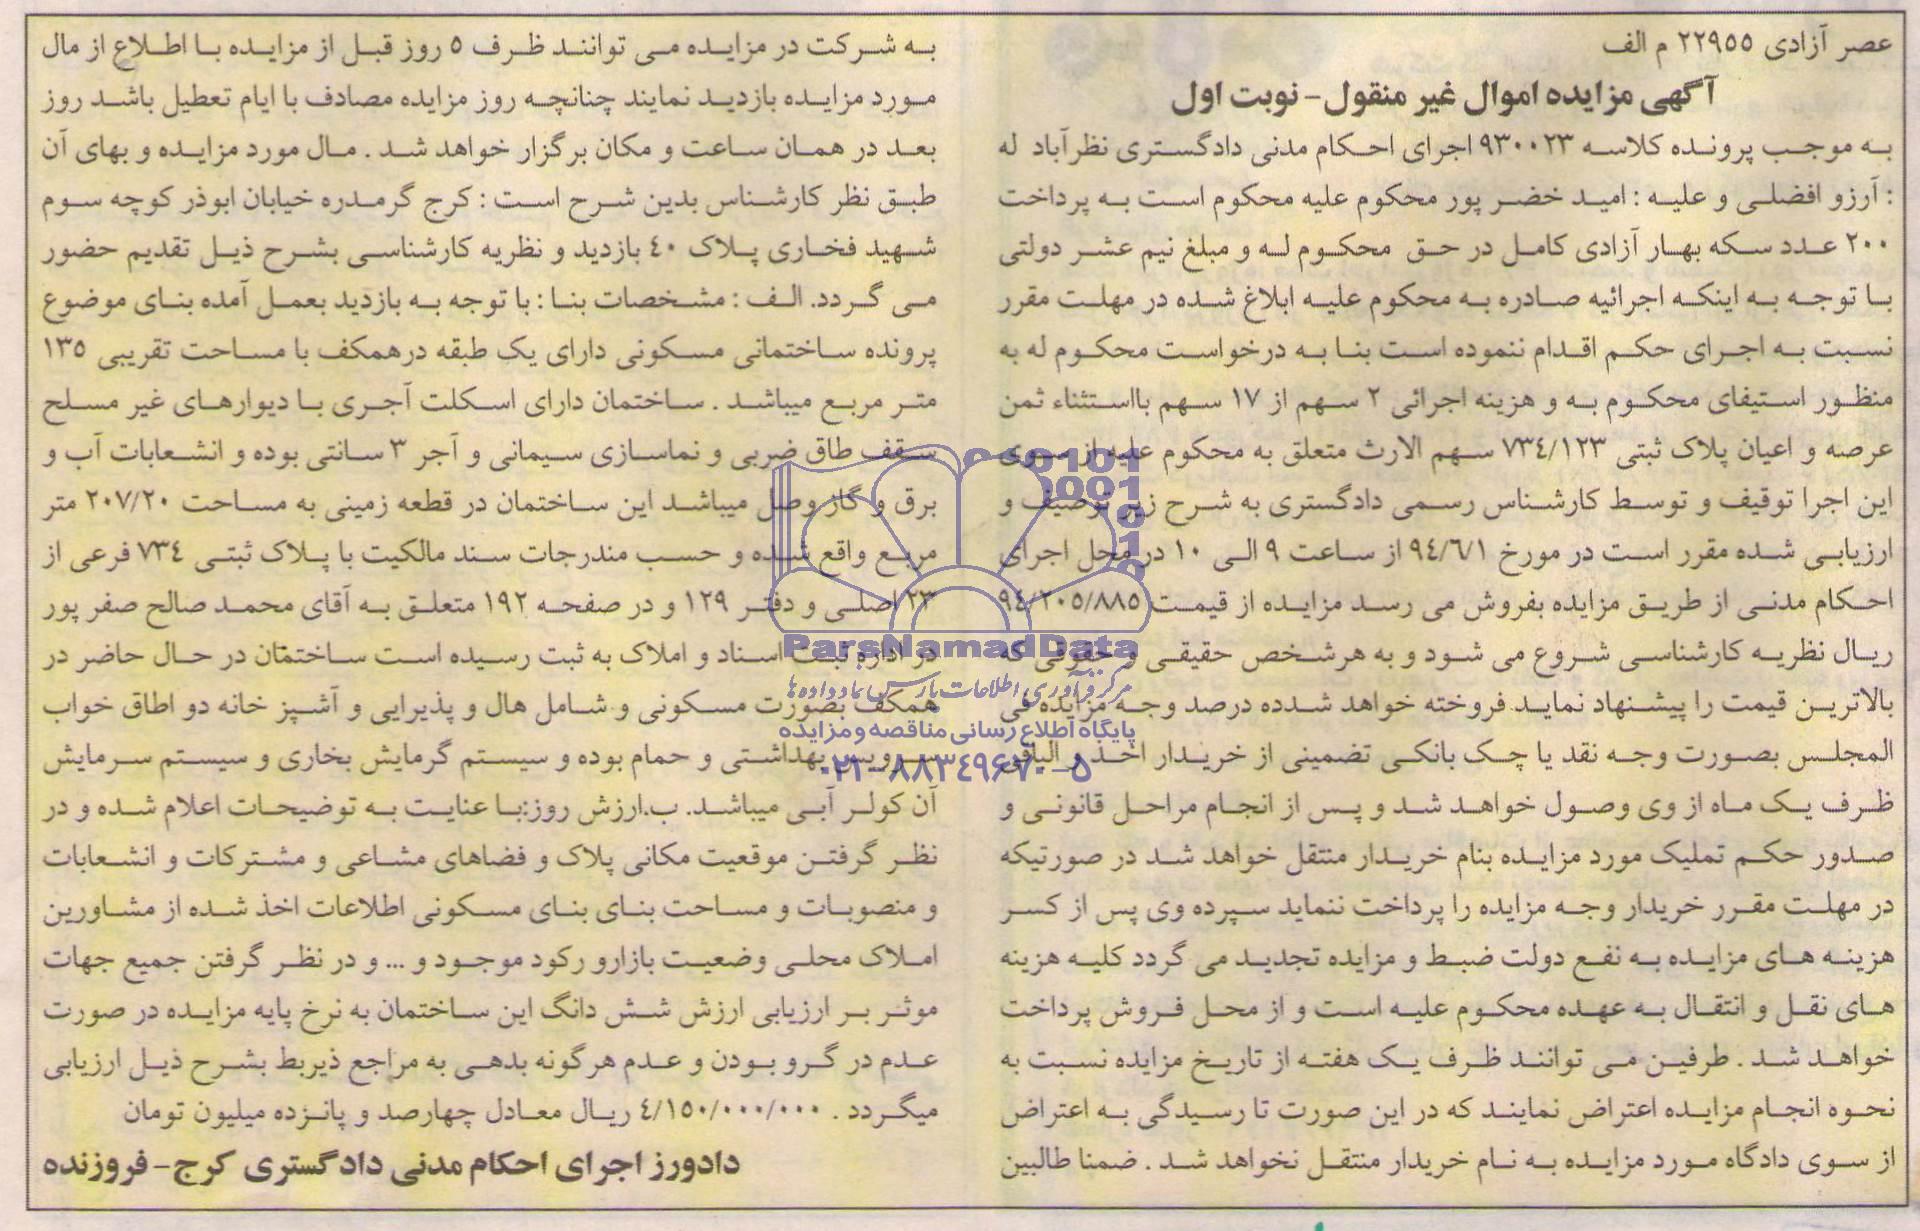 عصر آزادی ۲۲۹۵۵ م الف
آگهی مزایده اموال غیر منقول- نوبت اول
به موجب پرونده کلاسه ۹۳۰۰۲۳ اجرای احکام مدنی دادگستری نظرآباد له
: آرزو افضلی و علیه : امید خضر پور محکوم علیه محکوم است به پرداخت
۲۰۰ عدد سکه بهار آزادی کامل در حق محکوم له و مبلغ نیم عشر دولتی
با توجه به اینکه اجرائیه صادره به محکوم علیه ابلاغ شده در مهلت مقرر
نسبت به اجرای حکم اقدام ننموده است بنا به درخواست محکوم له به
منظور استیفای محکوم به و هزینه اجرائی ۲ سهم از ۱۷ سهم بااستثناء ثمن
عرصه و اعیان پلاک ثبتی ۷۳۴/۱۲۳ سهم الارث متعلق به محکوم علیه از سوی
این اجرا توقیف و توسط کارشناس رسمی دادگستری به شرح زیر توصیف و
ارزیابی شده مقرر است در مورخ ۹۴/۶/۱ از ساعت ۹ الی ۱۰ در محل اجرای
احکام مدنی از طریق مزایده بفروش می رسد مزایده از قیمت ۹۴/۲۰۵/۸۸۵
ریال نظریه کارشناسی شروع می شود و به هرشخص حقیقی و حقوقی که
بالاترین قیمت را پیشنهاد نماید فروخته خواهد شدده درصد وجه مزایده فی
المجلس بصورت وجه نقد یا چک بانکی تضمینی از خریدار اخذ و الباقی
ظرف یک ماه از وی وصول خواهد شد و پس از انجام مراحل قانونی و
صدور حکم تملیک مورد مزایده بنام خریدار منتقل خواهد شد در صورتیکه
در مهلت مقرر خریدار وجه مزایده را پرداخت ننماید سپرده وی پس از کسر
هزینه های مزایده به نفع دولت ضبط و مزایده تجدید می گردد کلیه هزینه
های نقل و انتقال به عهده محکوم علیه است و از محل فروش پرداخت
خواهد شد . طرفین می توانند ظرف یک هفته از تاریخ مزایده نسبت به
نحوه انجام مزایده اعتراض نمایند که در این صورت تا رسیدگی به اعتراض
از سوی دادگاه مورد مزایده به نام خریدار منتقل نخواهد شد . ضمنا طالبین
به شرکت در مزایده می توانند ظرف ۵ روز قبل از مزایده با اطلاع از مال
مورد مزایده بازدید نمایند چنانچه روز مزایده مصادف با ایام تعطیل باشد روز
بعد در همان ساعت و مکان برگزار خواهد شد . مال مورد مزایده و بهای آن
طبق نظر کارشناس بدین شرح است : کرج گرمدره خیابان ابوذر کوچه سوم
شهید فخاری پلاک ۴۰ بازدید و نظریه کارشناسی بشرح ذیل تقدیم حضور
می گردد. الف : مشخصات بنا : با توجه به بازدید بعمل آمده بنای موضوع
پرونده ساختمانی مسکونی دارای یک طبقه درهمکف با مساحت تقریبی ۱۳۵
متر مربع میباشد . ساختمان دارای اسکلت آجری با دیوارهای غیر مسلح
سقف طاق ضربی و نماسازی سیمانی و آجر ۳ سانتی بوده و انشعابات آب و
برق و گاز وصل میباشد این ساختمان در قطعه زمینی به مساحت ۲۰۷/۲۰ متر
مربع واقع شده و حسب مندرجات سند مالکیت با پلاک ثبتی ۷۳۴ فرعی از
۲۳ اصلی و دفتر ۱۲۹ و در صفحه ۱۹۲ متعلق به آقای محمد صالح صفر پور
در اداره ثبت اسناد و املاک به ثبت رسیده است ساختمان در حال حاضر در
همکف بصورت مسکونی و شامل هال و پذیرایی و آشپز خانه دو اطاق خواب
سرویس بهداشتی و حمام بوده و سیستم گرمایش بخاری و سیستم سرمایش
آن کولر آبی میباشد. ب.ارزش روز:با عنایت به توضیحات اعلام شده و در
نظر گرفتن موقعیت مکانی پلاک و فضاهای مشاعی و مشترکات و انشعابات
و منصوبات و مساحت بنای بنای مسکونی اطلاعات اخذ شده از مشاورین
املاک محلی وضعیت بازارو رکود موجود و ... و در نظر گرفتن جمیع جهات
موثر بر ارزیابی ارزش شش دانگ این ساختمان به نرخ پایه مزایده در صورت
عدم در گرو بودن و عدم هرگونه بدهی به مراجع ذیربط بشرح ذیل ارزیابی
میگردد . ۴/۱۵۰/۰۰۰/۰۰۰ ریال معادل چهارصد و پانزده میلیون تومان
دادورز اجرای احکام مدنی دادگستری کرج- فروزنده
ParsNamadData
مرکز فرآوری اطلاعات پارس نماد داده ها
پایگاه اطلاع رسانی مناقصه و مزایده
۰۲۱-۸۸۳۴۹۶۷۰-۵